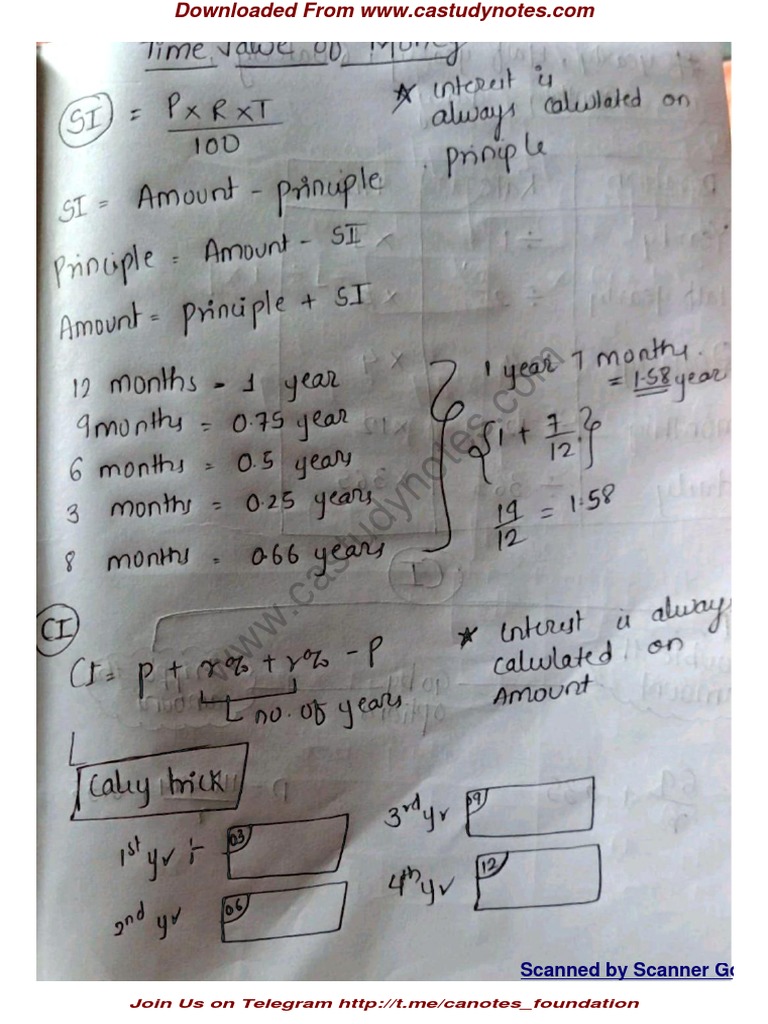 Downloaded From www.castudynotes.com
Time Value of Money
SI = P x R x T
100
* interest is
always calculated on
principle
SI = Amount - principle
Principle = Amount - SI
Amount = principle + SI
12 months - 1 year
9months = 0.75 year
6 months = 0.5 years
3 months = 0.25 years
8 months = 0.66 years
1 year 7 months.
= 1.58 year
{1 + 7/12}
19/12 = 1.58
I
www.castudynotes.com
CI
CI = P + r% + r% - P
no. of years
* interest is always
calculated on
Amount
Calcy trick
1st yr ÷ 03
2nd yr 06
3rd yr 09
4th yr 12
Scanned by Scanner Go
Join Us on Telegram http://t.me/canotes_foundation